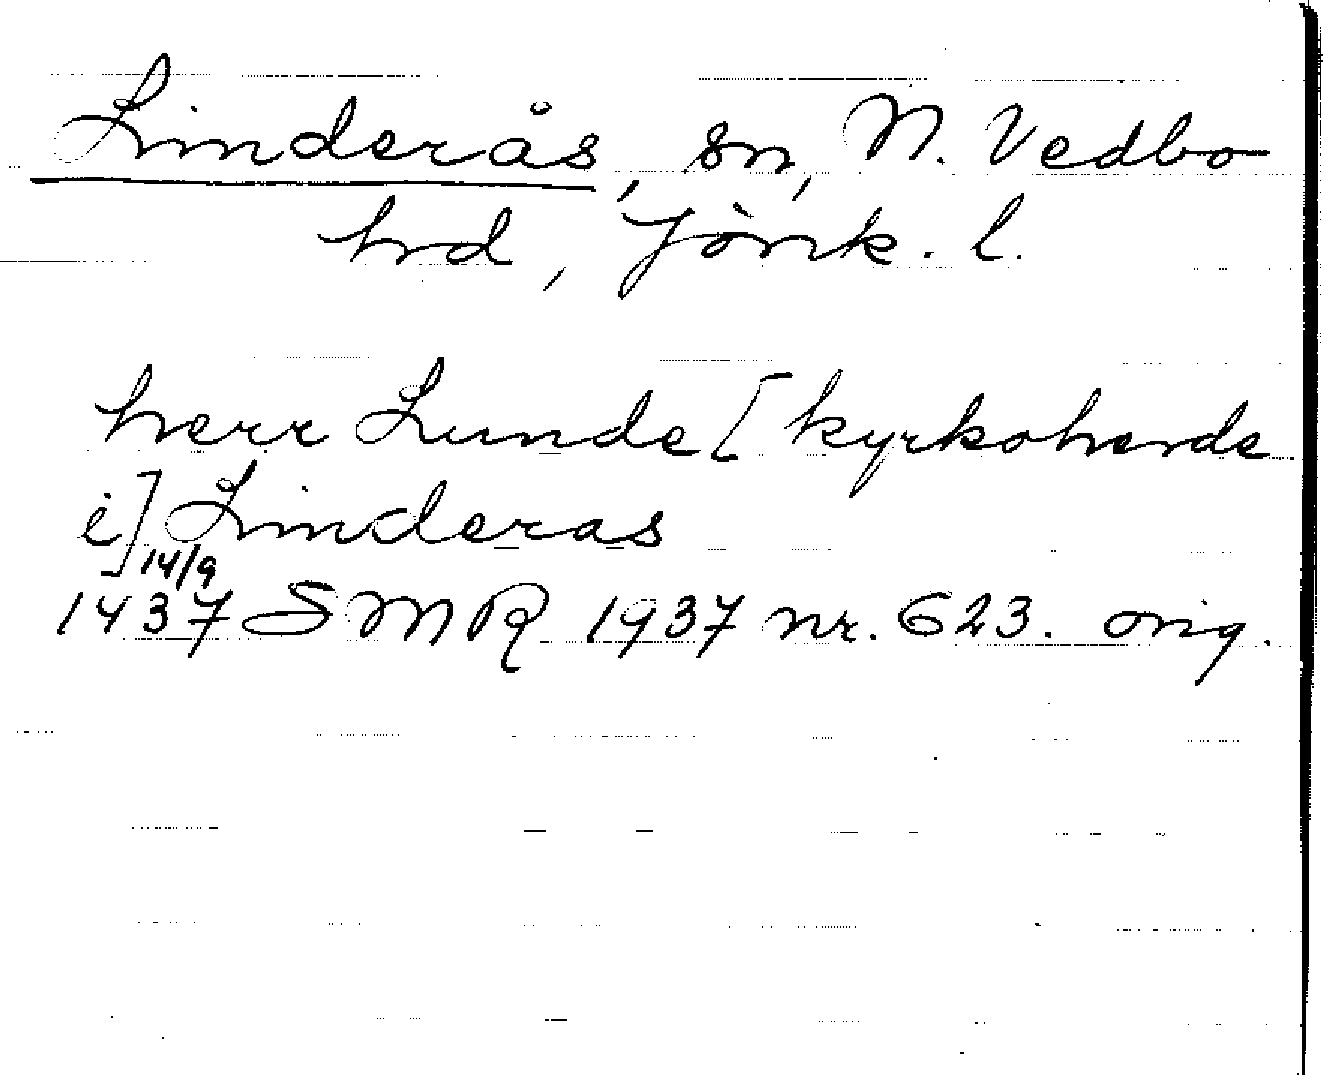 Linderås, sn, N. Vedbo
hd, Jönk. l.
herr Lunde [kyrkoherde
i] Linderas
14/9
1437 SMR 1937 nr. 623. orig.